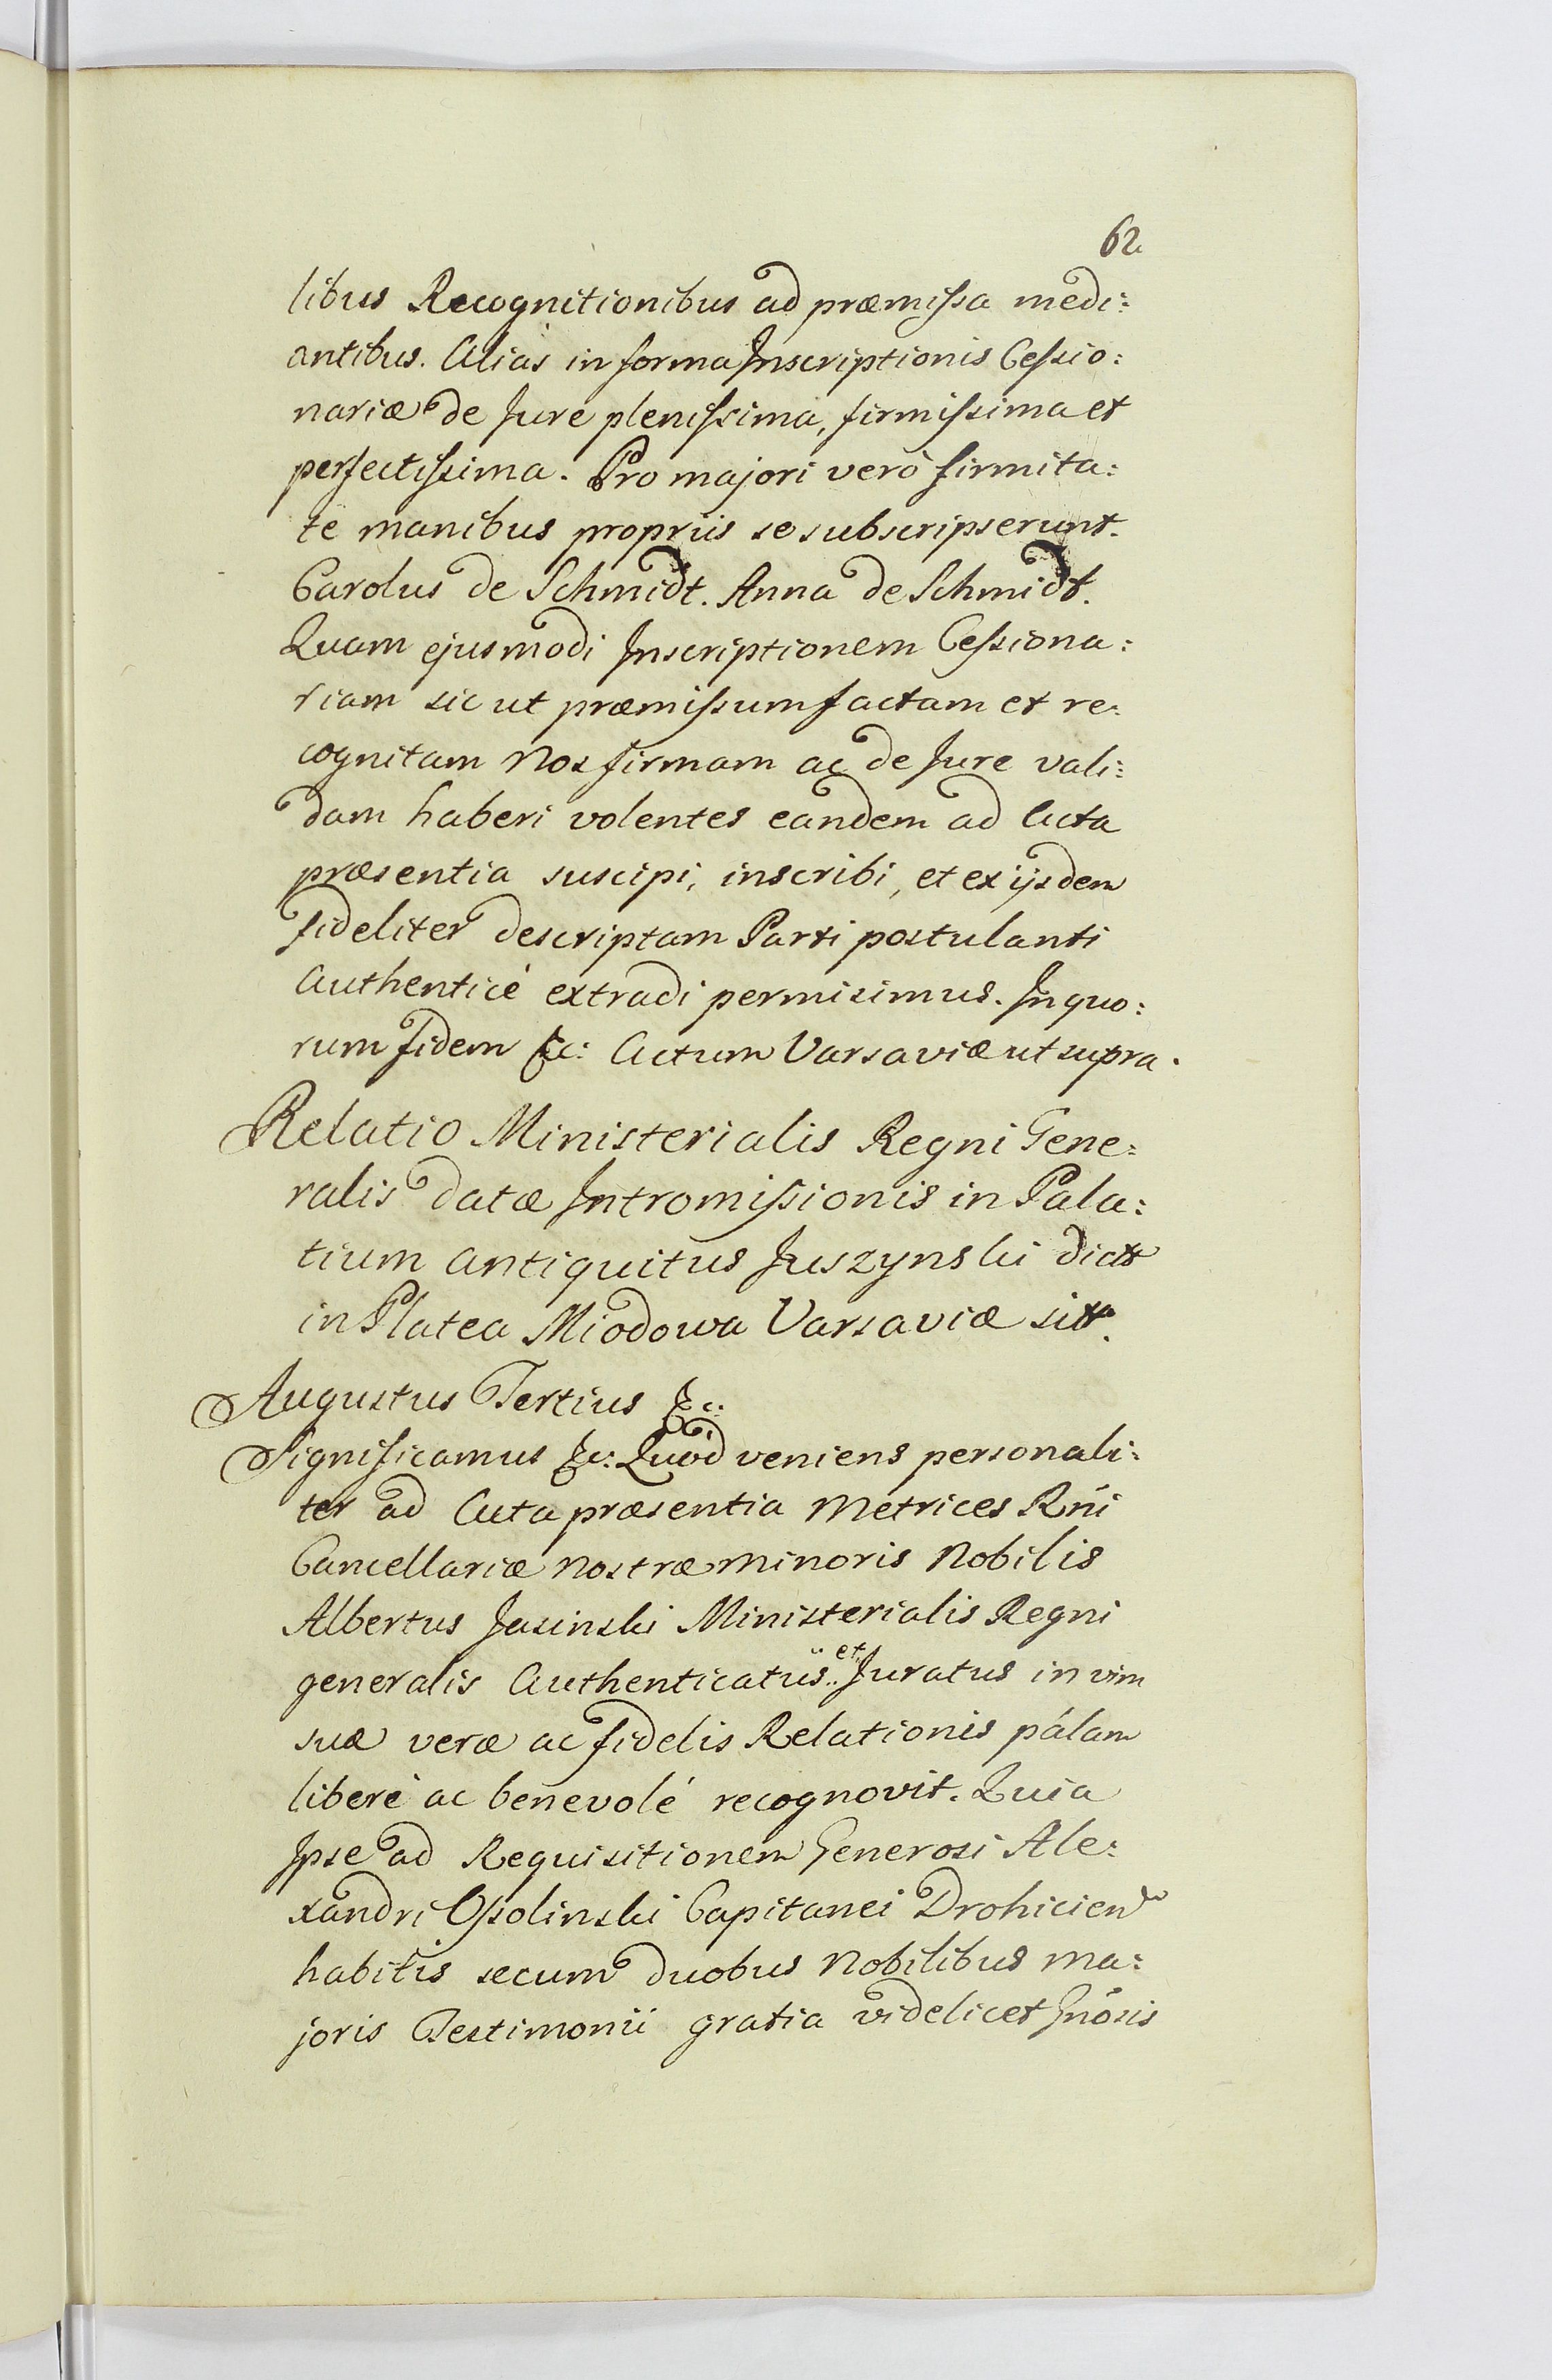 62
libus Recognitionibus ad præmissa medi:
antibus. Alias in forma Inscriptionis Cessio:
nariæ de Jure plenissima, firmissima et
perfectissima. Pro majori verò firmita:
te manibus propriis se subscripserunt.
Carolus de Schmidt. Anna de Schmidt.
Quam ejusmodi Inscriptionem Cessiona:
riam sic ut præmissum factam et re:
cognitam Nos firmam ac de Jure vali:
dam haberi volentes eandem ad Acta
præsentia suscipi, inscribi, et ex ijsdem
fideliter descriptam Parti postulanti
Authenticé extradi permisimus. In quo:
rum fidem &c: Actum Varsaviæ ut supra.
Relatio Ministerialis Regni Gene:
ralis datæ Intromissionis in Pala:
tium antiquitus Juszynski dict
in Platea Miodowa Varsaviæ sitt.
Augustus Tertius &c:
Significamus &c: Quòd veniens personali:
ter ad Acta præsentia Metrices Rńi
Cancellariæ Nostræ Minoris Nobilis
Albertus Jasinski Ministerialis Regni
generalis Authenticatus et Juratus in vim
suæ veræ ac fidelis Relationis pálam
liberè ac benevolé recognovit. Quia
Ipse ad Requisitionem Generosi Ale:
xandri Ossolinski Capitanei Drohicien
habitis secum duobus Nobilibus ma:
joris Testimonii gratia videlicet Gnósis